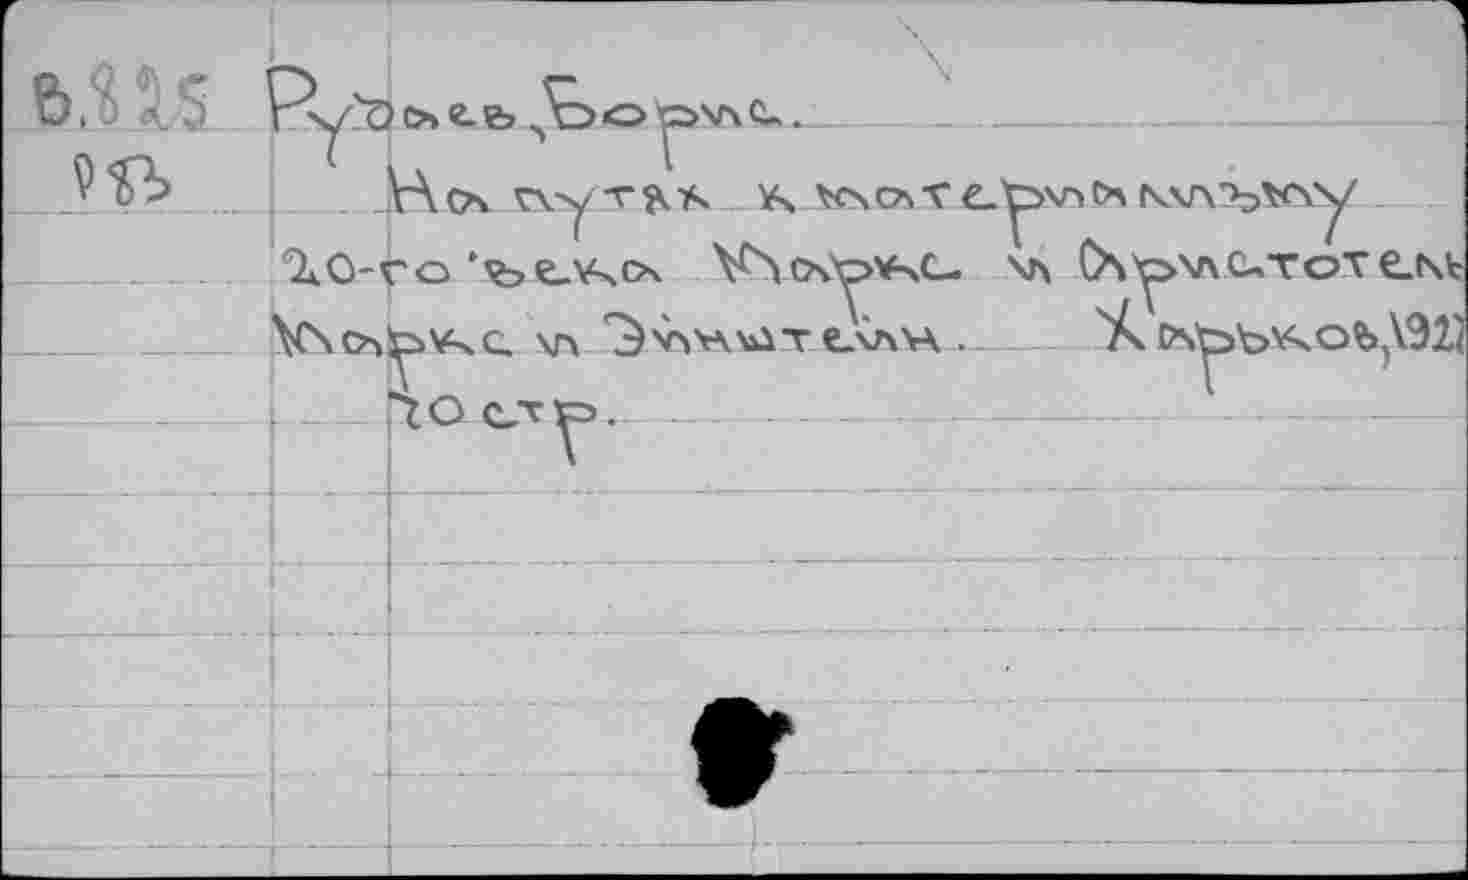 В.825 Рудаев, Борис.
На путях к материализму
20-го века. Маркс и Аристотель
Маркс и Эйнштейн. Харьков, 1927
70 стр.